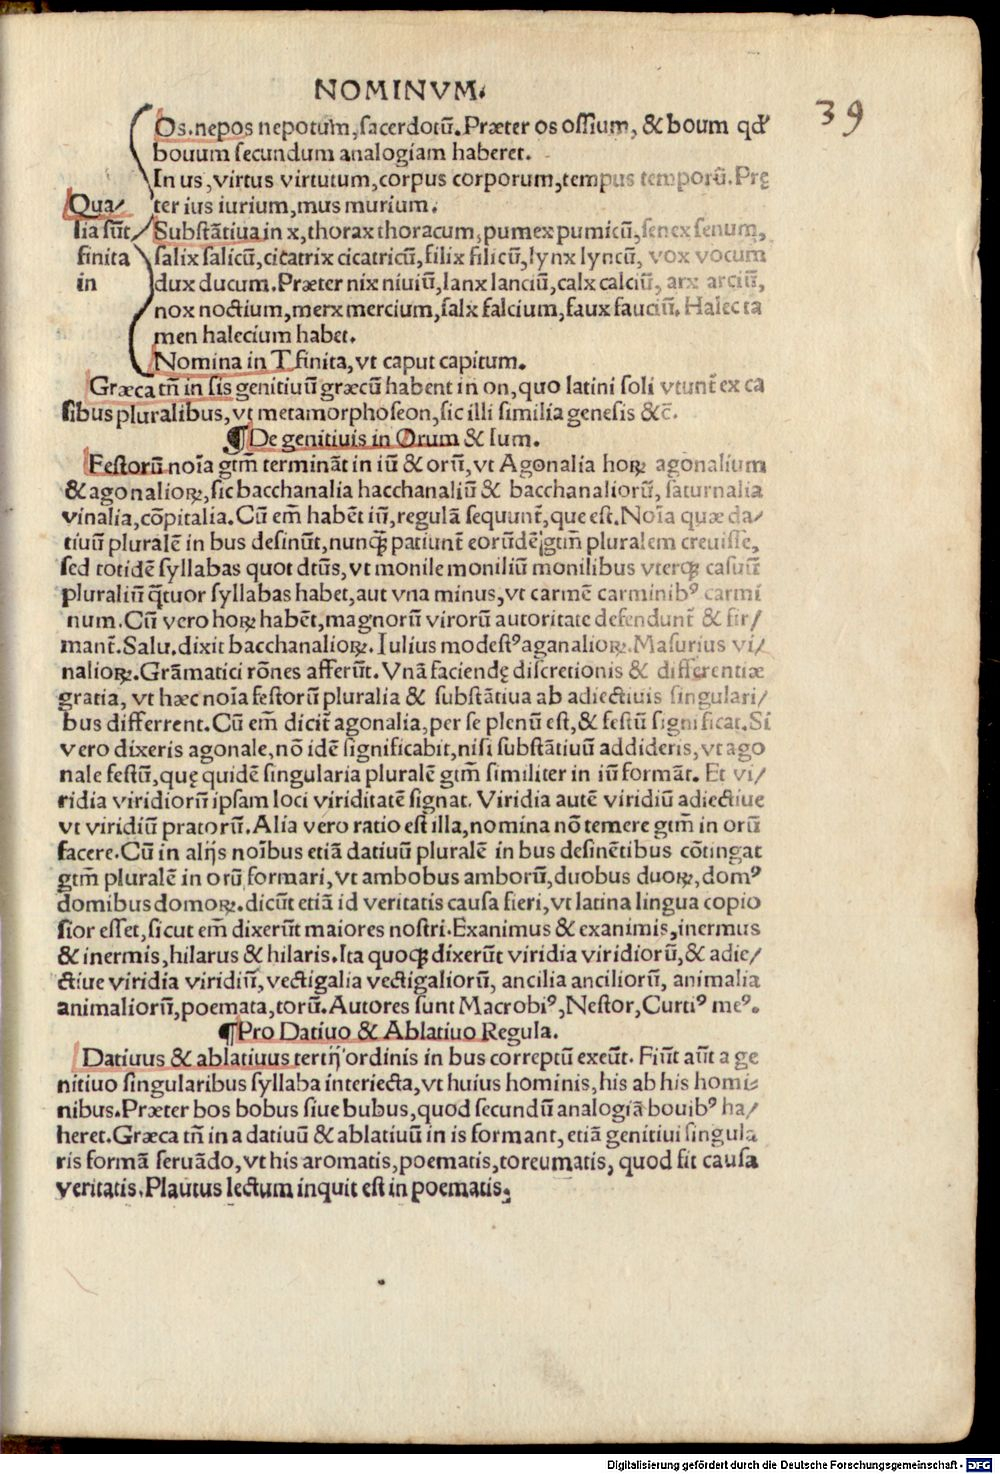 NOMINVM.
39
Os.nepos nepotum,ſacerdotū.Præter os oſſium, & boum qđ
bouum ſecundum analogiam haberet.
In us,virtus virtutum,corpus corporum,tempus temporū.Prę
ter ius iurium,mus murium.
Qua/
lia sūt
finita
in
Subſtātiua in x,thorax thoracum,pumex pumicū,ſenex ſenum,
ſalix ſalicū,cicatrix cicatricū,filix filicū,lynx lyncū, vox vocum
dux ducum.Præter nix niuiū,lanx lanciū,calx calciū, arx arciū,
nox noctium,merx mercium,falx falcium,faux fauciū.Halec ta
men halecium habet.
Nomina in T finita,vt caput capitum.
Græca tñ in sis genitiuū græcū habent in on,quo latini ſoli vtunt̄ ex ca
ſibus pluralibus,vt metamorphoſeon,ſic illi ſimilia geneſis &c̄.
¶De genitiuis in Orum & Ium.
Feſtorū noīa gtm̄ terminãt in iū & orū,vt Agonalia hoꝝ agonalium
& agonalioꝝ,ſic bacchanalia hacchanaliū & bacchanaliorū, ſaturnalia
vinalia,cōpitalia.Cū em̄ habēt iū,regulā ſequunt̄,que eſt.Noīa quæ da/
tiuū pluralē in bus deſinūt,nunqꝫ patiunt̄ eorūdē gtm̄ pluralem creuiſſe,
ſed totidē ſyllabas quot dtūs,vt monile moniliū monilibus vterqꝫ caſuū
pluraliū q̄tuor ſyllabas habet,aut vna minus,vt carmē carminibꝰ carmi
num.Cū vero hoꝝ habēt,magnorū virorū autoritate defendunt̄ & fir/
mant̄.Salu.dixit bacchanalioꝝ.Iulius modeſtꝰ aganalioꝝ.Maſurius vi/
nalioꝝ.Grāmatici rōnes afferūt.Vnā faciendę diſcretionis & differentiæ
gratia, vt hæc noīa feſtorū pluralia & ſubſtātiua ab adiectiuis ſingulari/
bus differrent.Cū em̄ dicit̄ agonalia,per ſe plenū eſt,& feſtū ſignificat.Si
vero dixeris agonale,nō idē ſignificabit,niſi ſubſtātiuū addideris,vt ago
nale feſtū,quę quidē ſingularia pluralē gtm̄ ſimiliter in iū formāt. Et vi/
ridia viridiorū ipſam loci viriditatē ſignat. Viridia autē viridiū adiectiue
vt viridiū pratorū.Alia vero ratio eſt illa,nomina nō temere gtm̄ in orū
facere.Cū in alijs noībus etiā datiuū pluralē in bus deſinētibus cōtingat
gtm̄ pluralē in orū formari,vt ambobus amborū,duobus duoꝝ,domꝰ
domibus domoꝝ.dicūt etiā id veritatis cauſa fieri,vt latina lingua copio
ſior eſſet,ſicut em̄ dixerūt maiores noſtri.Exanimus & exanimis,inermus
& inermis,hilarus & hilaris.Ita quoqꝫ dixerūt viridia viridiorū,& adie/
ctiue viridia viridiū,vectigalia vectigaliorū, ancilia anciliorū, animalia
animaliorū,poemata,torū.Autores ſunt Macrobiꝰ,Neſtor,Curtiꝰ meꝰ.
¶Pro Datiuo & Ablatiuo Regula.
Datiuus & ablatiuus tertij ordinis in bus correptū exeūt. Fiūt aūt a ge
nitiuo ſingularibus ſyllaba interiecta,vt huius hominis,his ab his homi/
nibus.Præter bos bobus ſiue bubus,quod ſecundū analogiā bouibꝰ ha/
heret.Græca tñ in a datiuū & ablatiuū in is formant,etiā genitiui ſingula
ris formā ſeruādo,vt his aromatis,poematis,toreumatis, quod fit cauſa
veritatis.Plautus lectum inquit eſt in poematis.
Digitalisierung gefördert durch die Deutsche Forschungsgemeinschaft - DFG